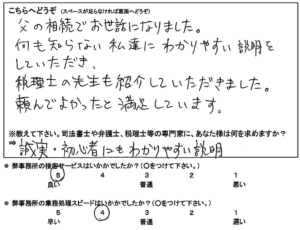 こちらへどうぞ (スペースが足らなければ裏面へどうぞ)
父の相続でお世話になりました。
何も知らない私達にわかりやすい説明を
していただき、
税理士の先生も紹介していただきました。
頼んでよかったと満足しています。
※教えて下さい。司法書士や弁護士、税理士等の専門家に、あなた様は何を求めますか?
⇒誠実・初心者にもわかりやすい説明
● 弊事務所の接客サービスはいかがでしたか?(○をつけて下さい。)
5 4 3 2 1
良い 普通 悪い
● 弊事務所の業務処理スピードはいかがでしたか?(○をつけて下さい。)
5 4 3 2 1
早い 普通 遅い